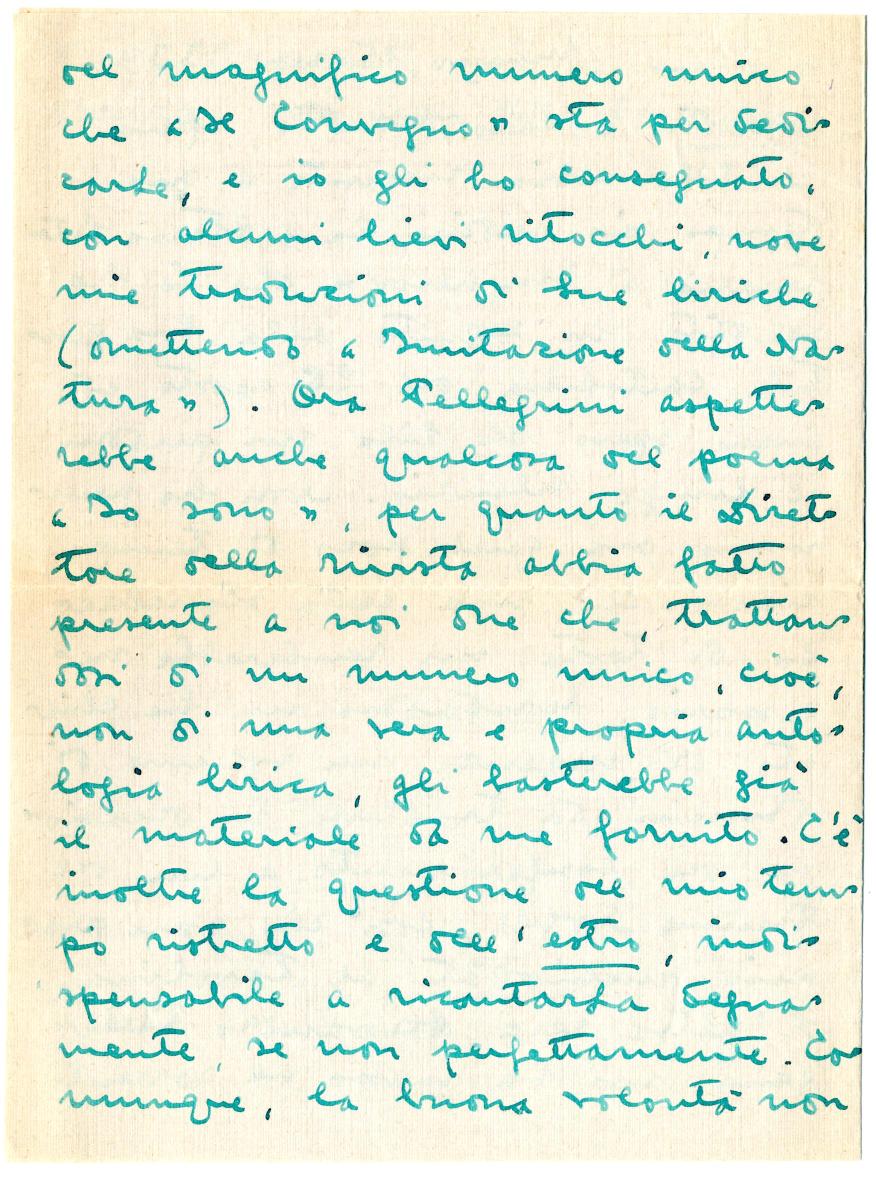 del magnifico numero unico
che «Il Convegno» sta per dedi-
carLe, e io gli ho consegnato,
con alcuni lievi ritocchi, nove
mie traduzioni di Sue liriche
(omettendo «Imitazione della Na-
tura»). Ora Pellegrini aspette-
rebbe anche qualcosa del poema
«Io sono», per quanto il Diret-
tore della rivista abbia fatto
presente a noi due che, trattan-
dosi di un numero unico, cioè,
non di una vera e propria anto-
logia lirica, gli basterebbe già
il materiale da me fornito. C'è
inoltre la questione del mio tem-
po ristretto e dell'estro, indi-
spensabile a ricantarLa degna-
mente, se non perfettamente. Co-
munque, la buona volontà non